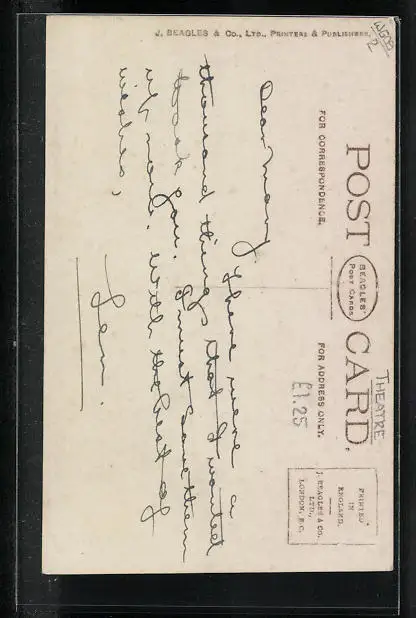 J. BEAGLES & Co., LTD., PRINTERS & PUBLISHERS.
POST CARD.
BEAGLES'
POST CARDS
THEATRE
FOR CORRESPONDENCE.
FOR ADDRESS ONLY.
£1.25
PRINTED
IN
ENGLAND.
J. BEAGLES & CO.,
LTD.,
LONDON, E.C.
Dear Mary
There were a
thousand things that I wanted
you. I must save them
with the best of
wishes,